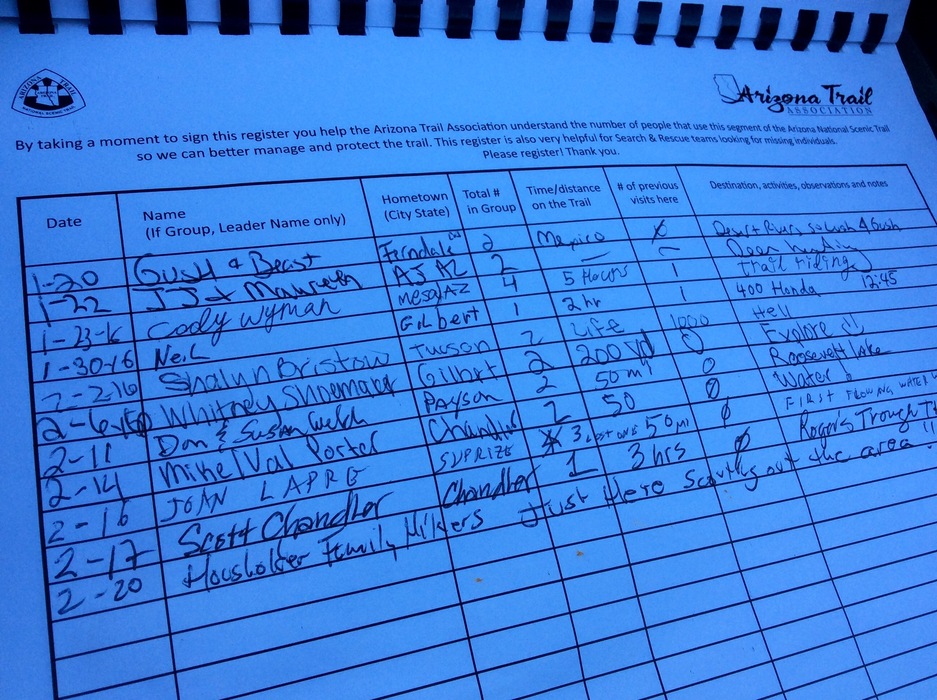 ARIZONA TRAIL
NATIONAL SCENIC TRAIL
Arizona Trail
ASSOCIATION
By taking a moment to sign this register you help the Arizona Trail Association understand the number of people that use this segment of the Arizona National Scenic Trail
so we can better manage and protect the trail. This register is also very helpful for Search & Rescue teams looking for missing individuals.
Please register! Thank you.
Date Name Hometown Total # Time/distance # of previous Destination, activities, observations and notes
(If Group, Leader Name only) (City State) in Group on the Trail visits here
1-20 Gush & Beast Ferndale 2 Mexico Ø
1-22 JJ & Maureen AJ AZ 2 — — Deer hunting
1-23-16 Cody Wyman Mesa AZ 4 5 Hours 1 trail riding
1-30-16 Neil Gilbert 1 2 hr 1 400 Honda 12:45
2-2-16 Shalyn Bristow Tucson 2 Life 1000 Hell
2-6-16 Whitney Shoemaker Gilbert 2 200 yd 0 Explore
2-11 Don & Susan Welch Payson 2 50 mi 0 Roosevelt lake
2-14 Mike/Val Porter Chandler 2 50 0 Water
2-16 JOAN LAPRE SUPRIZE 3 LOST ONE 50 mi Ø FIRST FLOWING WATER
2-17 Scott Chandler Chandler 1 3 hrs Ø Roger's Trough
2-20 Housholder Family Hikers Just Here Scouting out the area!!